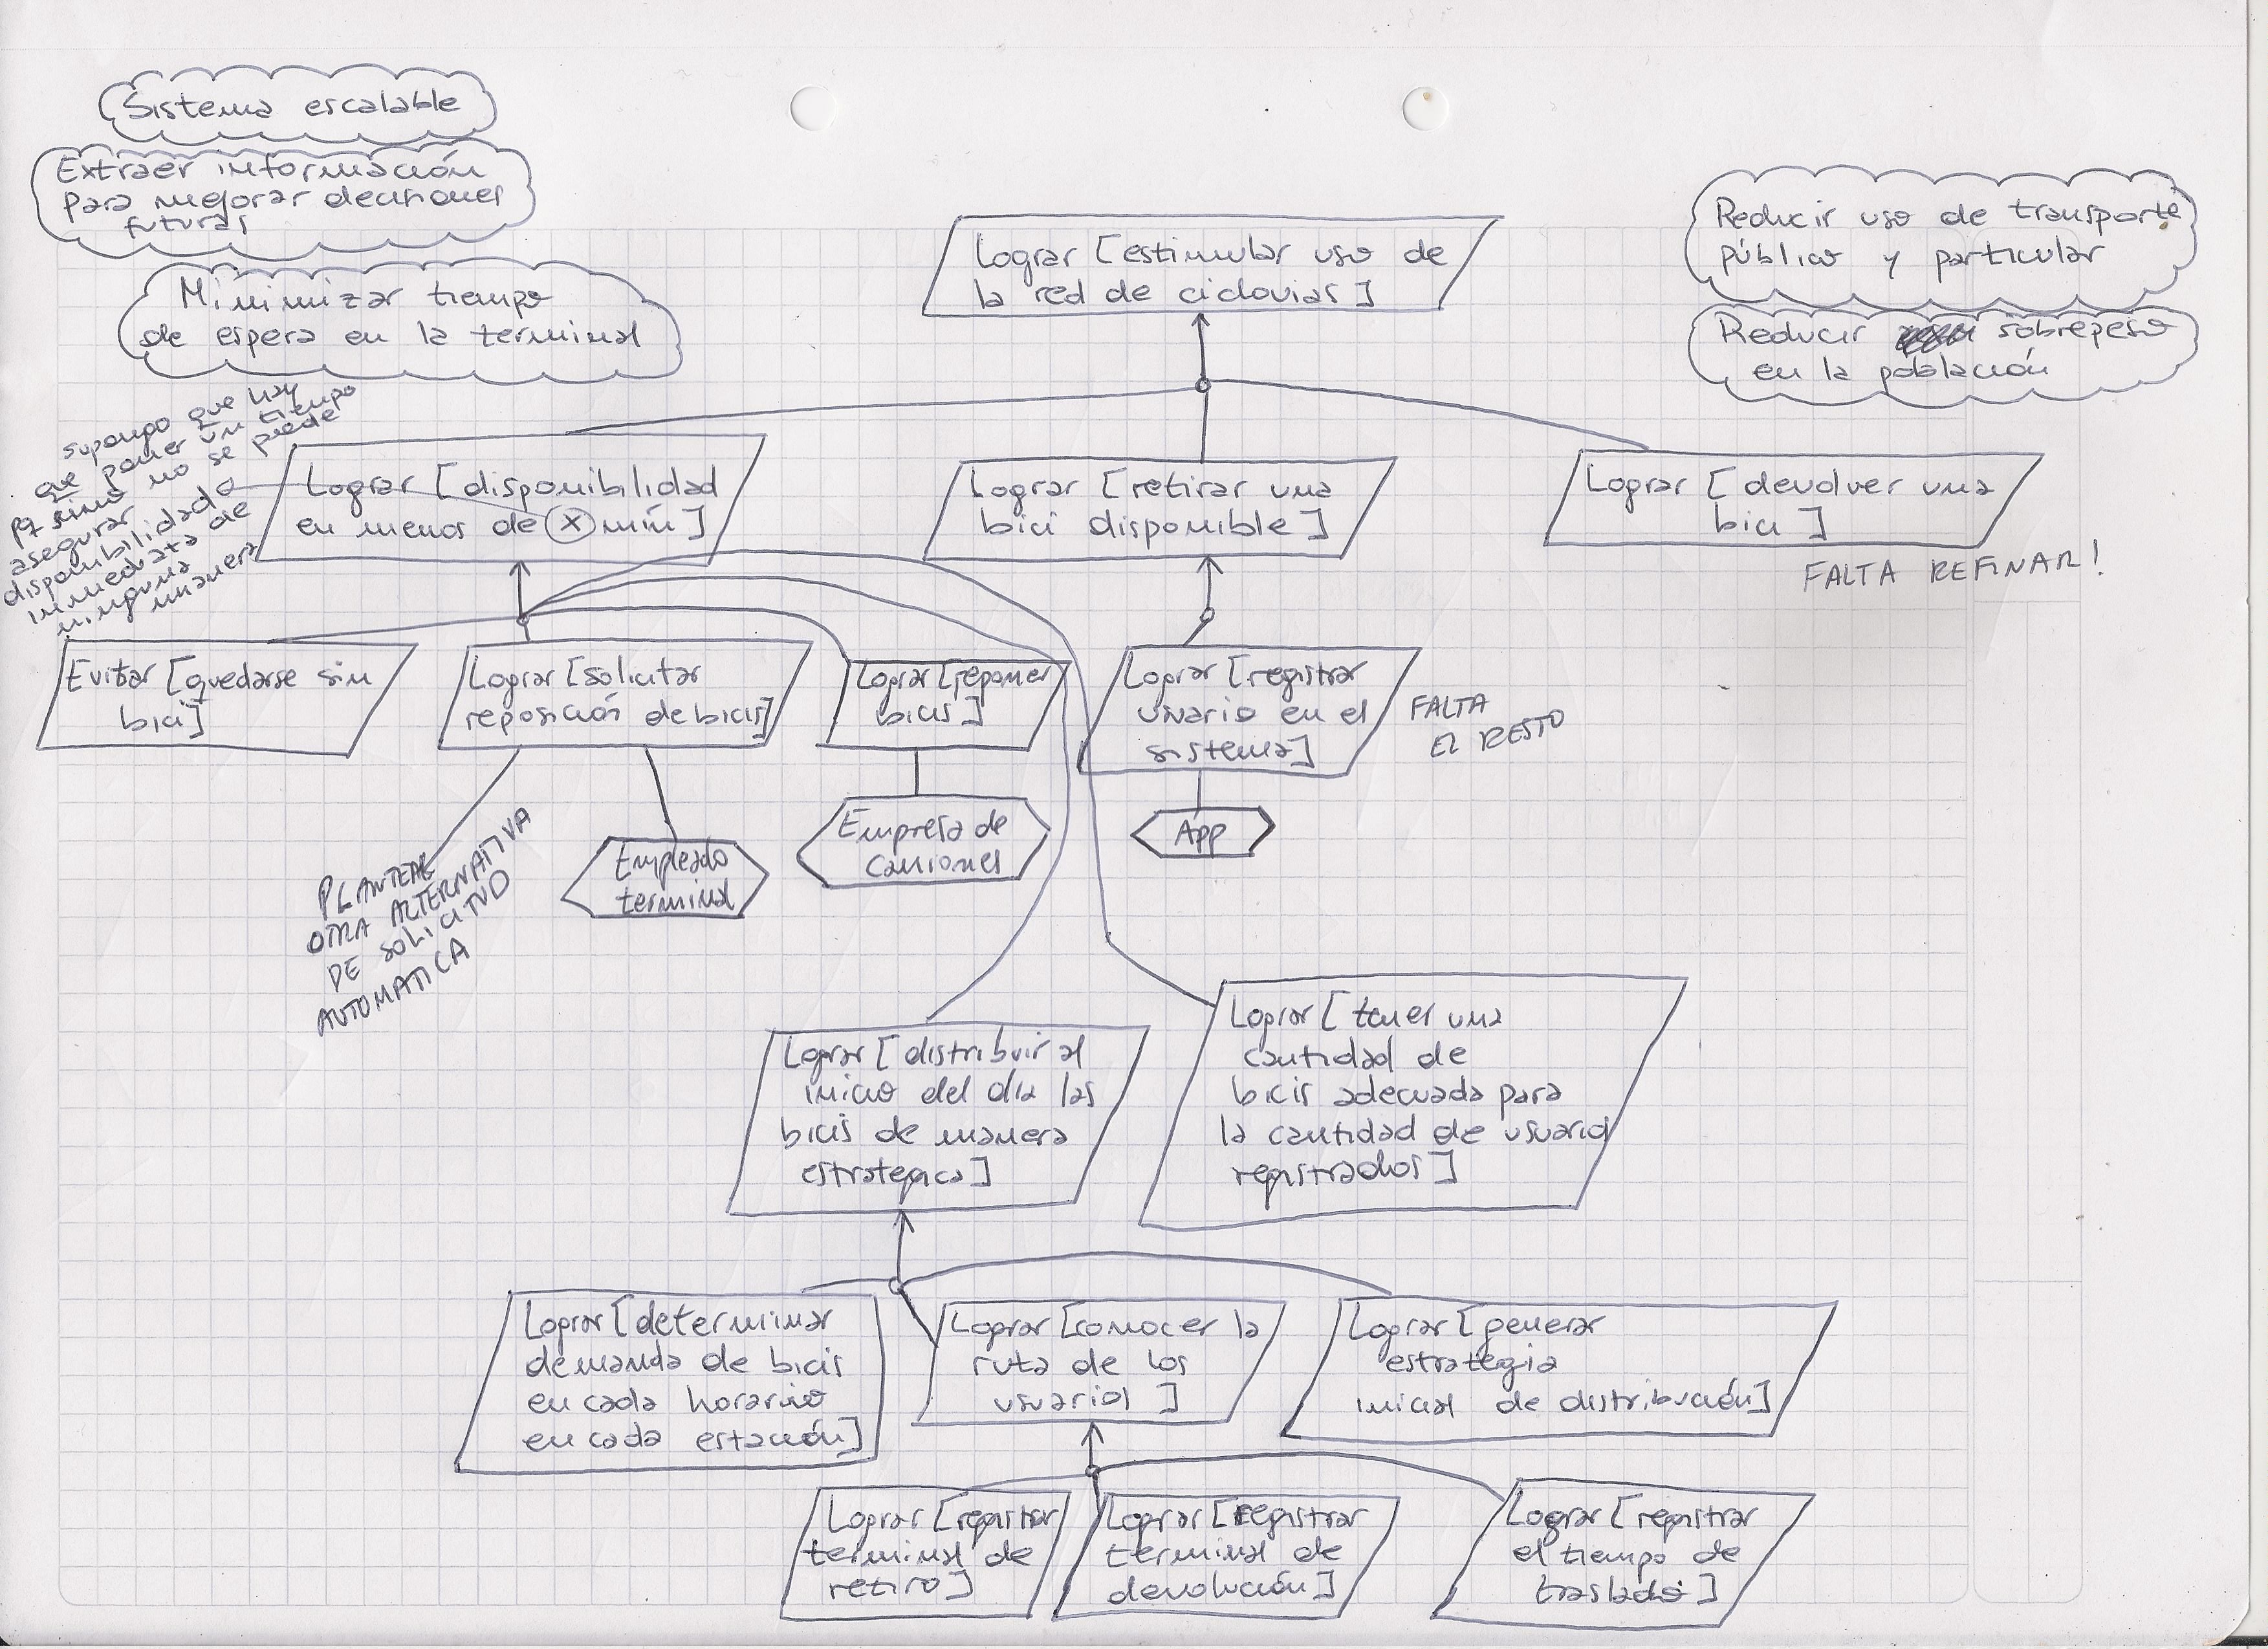 Sistema escalable
Extraer información
para mejorar decisiones
futuras
Minimizar tiempo
de espera en la terminal
Lograr [estimular uso de
la red de ciclovias]
Reducir uso de transporte
público y particular
Reducir sobrepeso
en la población
supongo que hay
que poner un tiempo
pq sino no se puede
asegurar
disponibilidad
inmediata de
ninguna
manera
Lograr [disponibilidad
en menos de X min]
Lograr [retirar una
bici disponible]
Lograr [devolver una
bici]
FALTA REFINAR!
Evitar [quedarse sin
bici]
Lograr [solicitar
reposición de bicis]
Lograr [reponer
bicis]
Lograr [registrar
usuario en el
sistema]
FALTA
EL RESTO
PLANTEAR
OTRA ALTERNATIVA
DE SOLICITUD
AUTOMATICA
Empleado
terminal
Empresa de
camiones
App
Lograr [distribuir al
inicio del día las
bicis de manera
estrategica]
Lograr [tener una
cantidad de
bicis adecuada para
la cantidad de usuarios
registrados]
Lograr [determinar
demanda de bicis
en cada horario
en cada estación]
Lograr [conocer la
ruta de los
usuarios]
Lograr [generar
estrategia
inicial de distribución]
Lograr [registrar
terminal de
retiro]
Lograr [registrar
terminal de
devolución]
Lograr [registrar
el tiempo de
traslado]